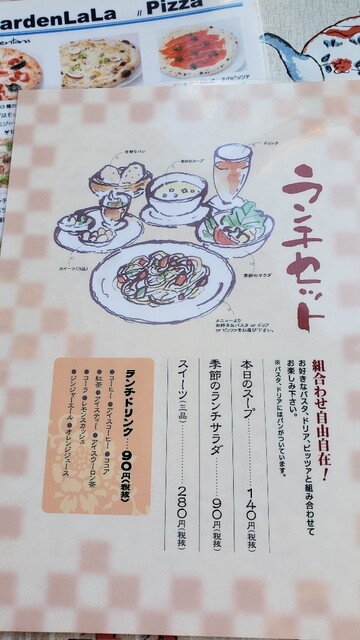 ardenLaLa
Pizza
ランチセット
日替りパン
季節のスープ
ドリンク
スイーツ(三品)
季節のサラダ
メニューより
お好きなパスタ or ドリア
or ピッツァをお選び下さい。
組合わせ自由自在!
お好きなパスタ、ドリア、ピッツァと組み合わせて
お楽しみ下さい。
※パスタ、ドリアにはパンがついています。
本日のスープ……140円(税抜)
季節のランチサラダ……90円(税抜)
スイーツ(三品)……280円(税抜)
ランチドリンク……90円(税抜)
●コーヒー ●アイスコーヒー ●ココア
●紅茶 ●アイスティー ●アイスウーロン茶
●コーラ ●レモンスカッシュ
●ジンジャーエール ●オレンジジュース